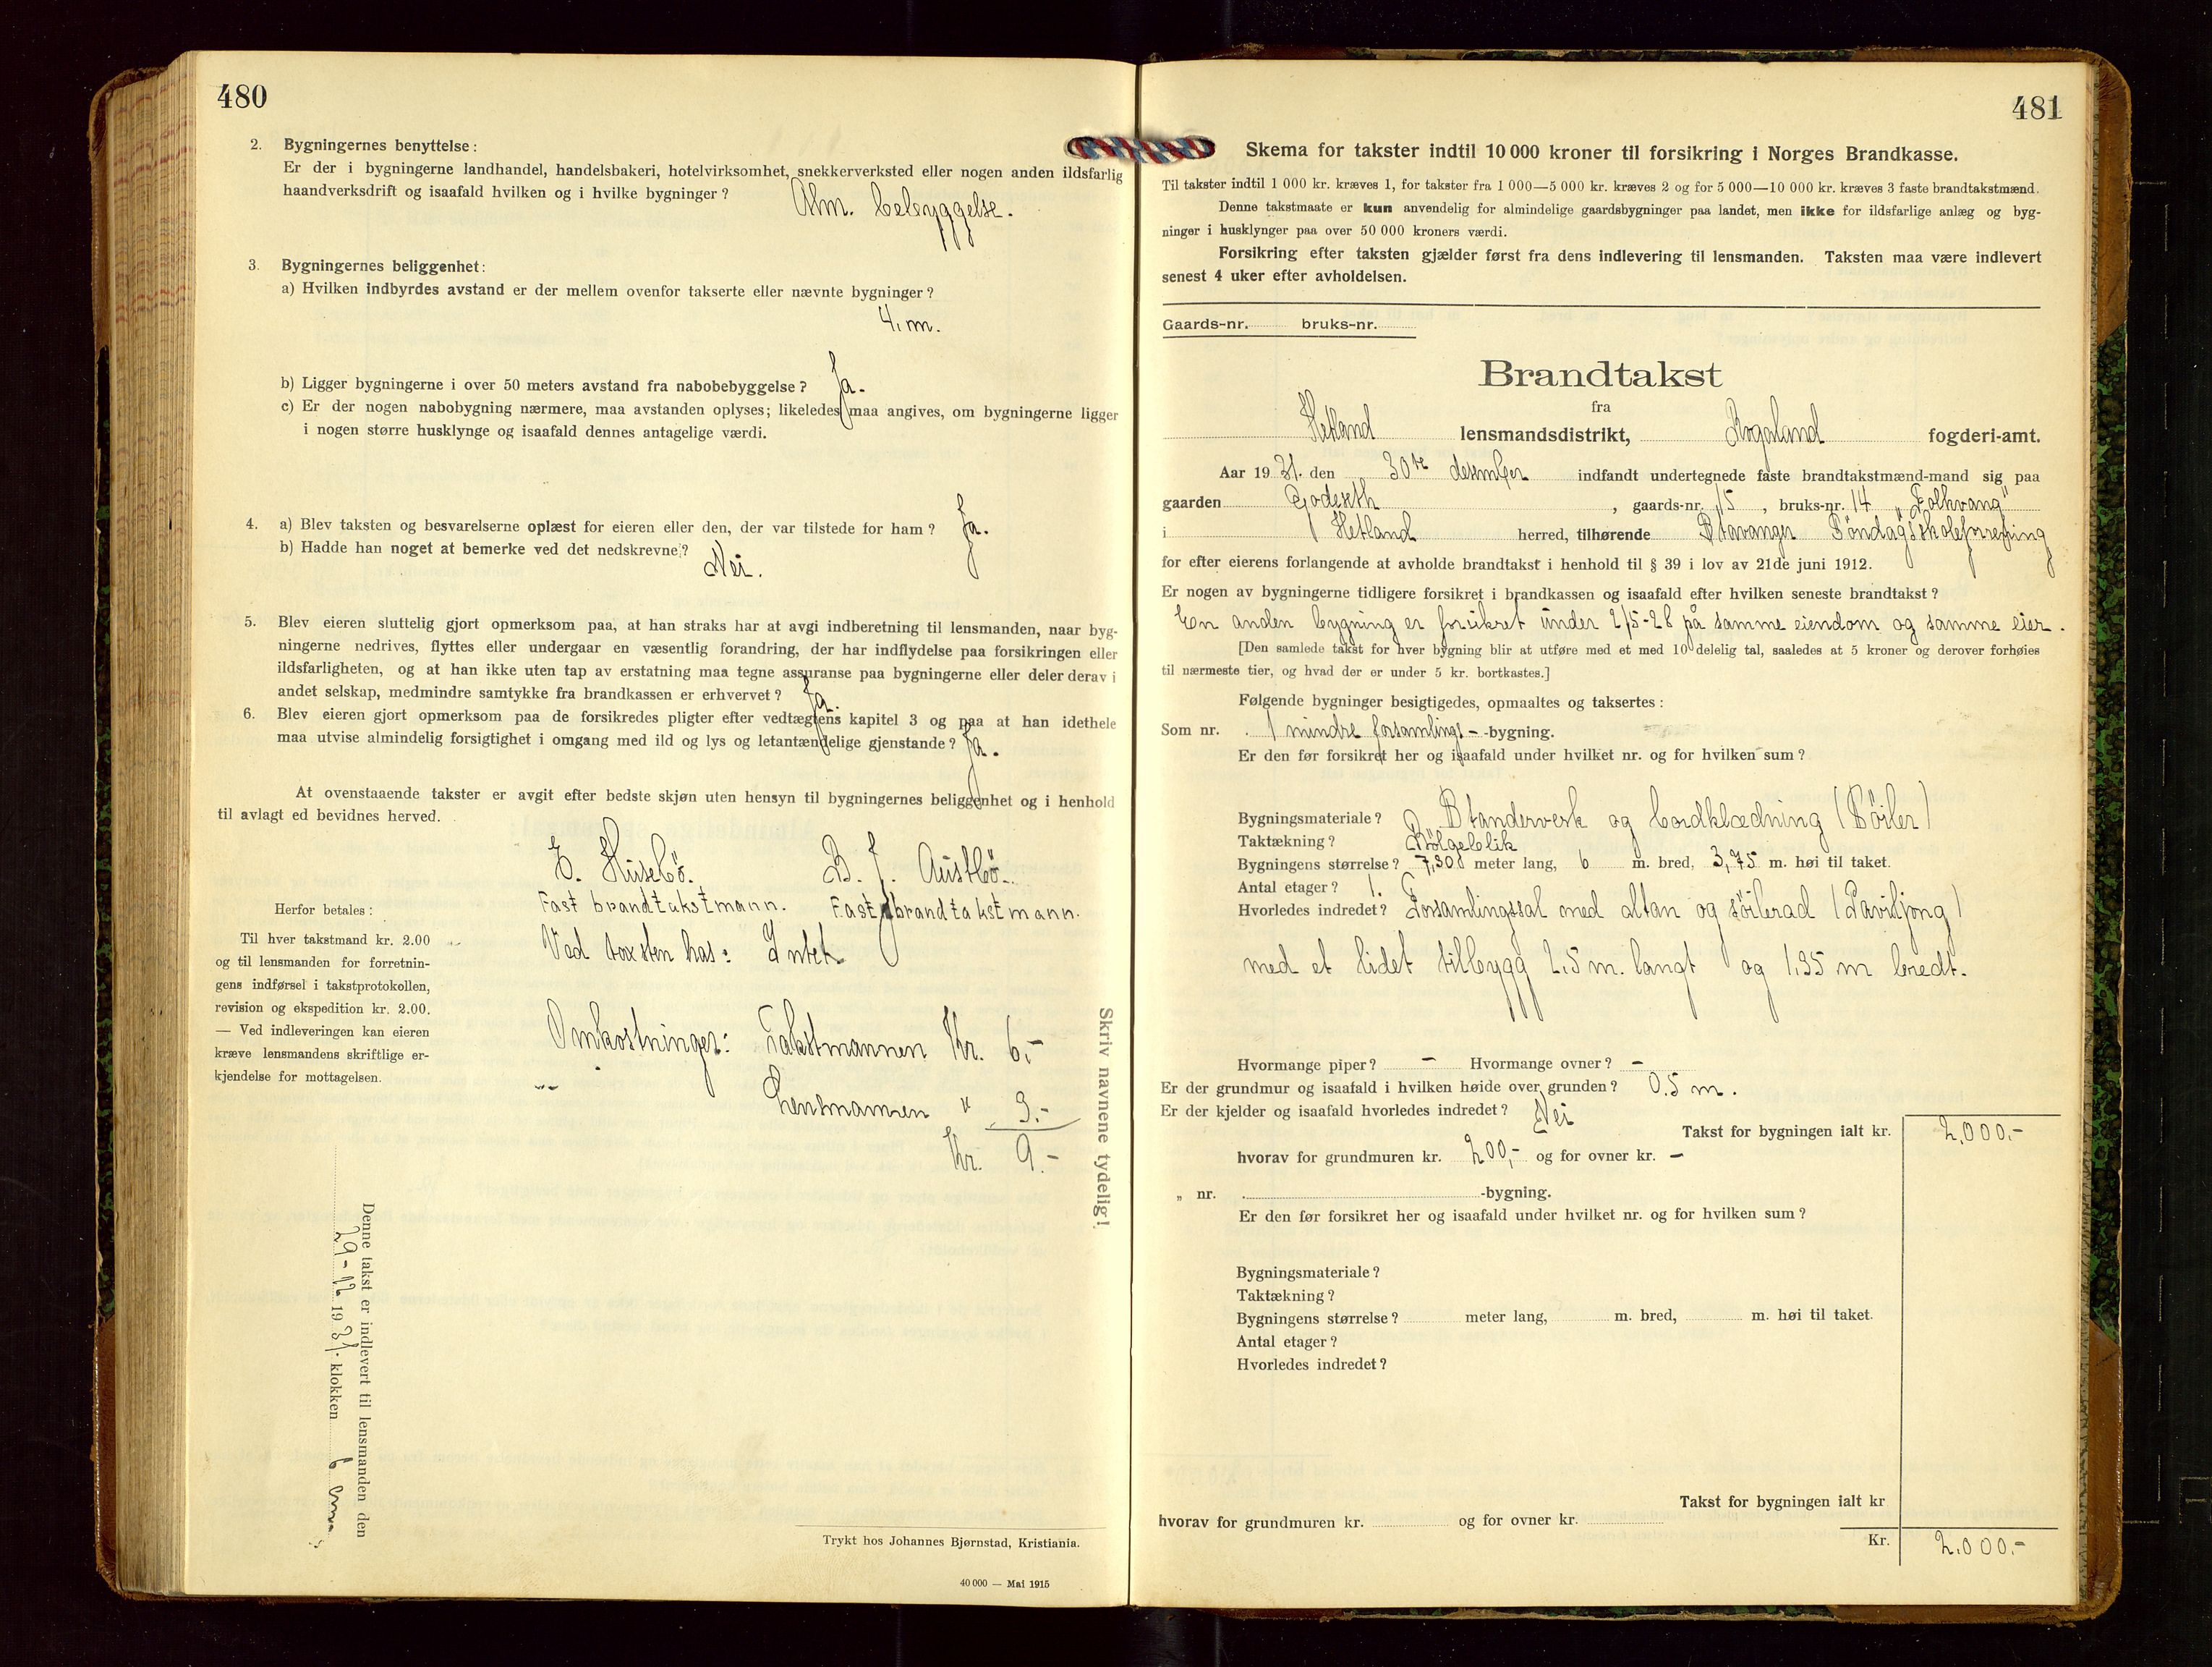 480
2. Bygningernes benyttelse:
Er der i bygningerne landhandel, handelsbakeri, hotelvirksomhet, snekkerverksted eller nogen anden ildsfarlig
haandverksdrift og isaafald hvilken og i hvilke bygninger? Alm. bebyggelse.
3. Bygningernes beliggenhet:
a) Hvilken indbyrdes avstand er der mellem ovenfor takserte eller nævnte bygninger?
4. m.
b) Ligger bygningerne i over 50 meters avstand fra nabobebyggelse? Ja.
c) Er der nogen nabobygning nærmere, maa avstanden oplyses; likeledes maa angives, om bygningerne ligger
i nogen større husklynge og isaafald dennes antagelige værdi.
4. a) Blev taksten og besvarelserne oplæst for eieren eller den, der var tilstede for ham? Ja.
b) Hadde han noget at bemerke ved det nedskrevne? Nei.
5. Blev eieren sluttelig gjort opmerksom paa, at han straks har at avgi indberetning til lensmanden, naar byg-
ningerne nedrives, flyttes eller undergaar en væsentlig forandring, der har indflydelse paa forsikringen eller
ildsfarligheten, og at han ikke uten tap av erstatning maa tegne assuranse paa bygningerne eller deler derav i
andet selskap, medmindre samtykke fra brandkassen er erhvervet? Ja.
6. Blev eieren gjort opmerksom paa de forsikredes pligter efter vedtægtens kapitel 3 og paa at han idethele
maa utvise almindelig forsigtighet i omgang med ild og lys og letantændelige gjenstande? Ja.
At ovenstaaende takster er avgit efter bedste skjøn uten hensyn til bygningernes beliggenhet og i henhold
til avlagt ed bevidnes herved.
E. Husebö. B. J. Austbö.
Fast brandtakstmann. Fast brandtakstmann.
Herfor betales:
Til hver takstmand kr. 2.00
og til lensmanden for forretnin-
gens indførsel i takstprotokollen,
revision og ekspedition kr. 2.00.
— Ved indleveringen kan eieren
kræve lensmandens skriftlige er-
kjendelse for mottagelsen.
Ved taxsten has: Intet
Omkostninger: Takstmannen Kr. 6,-
Lensmannen " 3.-
Kr. 9.-
Skriv navnene tydelig!
Denne takst er indlevert til lensmanden den
29-12 1931. klokken 6 em.
Trykt hos Johannes Bjørnstad, Kristiania.
40 000 — Mai 1915
481
Skema for takster indtil 10 000 kroner til forsikring i Norges Brandkasse.
Til takster indtil 1 000 kr. kræves 1, for takster fra 1 000—5 000 kr. kræves 2 og for 5 000—10 000 kr. kræves 3 faste brandtakstmænd.
Denne takstmaate er kun anvendelig for almindelige gaardsbygninger paa landet, men ikke for ildsfarlige anlæg og byg-
ninger i husklynger paa over 50 000 kroners værdi.
Forsikring efter taksten gjælder først fra dens indlevering til lensmanden. Taksten maa være indlevert
senest 4 uker efter avholdelsen.
Gaards-nr. bruks-nr.
Brandtakst
fra
Hetland lensmandsdistrikt, Rogaland fogderi-amt.
Aar 1931. den 30te desember indfandt undertegnede faste brandtakstmænd-mand sig paa
gaarden Godeseth, gaards-nr. 15, bruks-nr. 14 „Solhvang"
i Hetland herred, tilhørende Stavanger Söndagsskoleforening
for efter eierens forlangende at avholde brandtakst i henhold til § 39 i lov av 21de juni 1912.
Er nogen av bygningerne tidligere forsikret i brandkassen og isaafald efter hvilken seneste brandtakst?
En anden bygning er forsikret under 2/5-28 på samme eiendom og samme eier.
[Den samlede takst for hver bygning blir at utføre med et med 10 delelig tal, saaledes at 5 kroner og derover forhøies
til nærmeste tier, og hvad der er under 5 kr. bortkastes.]
Følgende bygninger besigtigedes, opmaaltes og taksertes:
Som nr. . 1 mindre forsamlings- -bygning.
Er den før forsikret her og isaafald under hvilket nr. og for hvilken sum?
Bygningsmateriale? Standerverk og bordklædning (Söiler)
Taktækning? Bölgeblik
Bygningens størrelse? 7,30 meter lang, 6 m. bred, 3,75 m. høi til taket.
Antal etager? 1.
Hvorledes indredet? Forsamlingssal med altan og söilerad (Paviljong)
med et lidet tilbygg 2,5 m. langt og 1,35 m bredt.
Hvormange piper? - Hvormange ovner? -
Er der grundmur og isaafald i hvilken høide over grunden? 0.5 m.
Er der kjelder og isaafald hvorledes indredet? Nei
Takst for bygningen ialt kr. 2,000.-
hvorav for grundmuren kr. 200,- og for ovner kr. -
„ nr. . -bygning.
Er den før forsikret her og isaafald under hvilket nr. og for hvilken sum?
Bygningsmateriale?
Taktækning?
Bygningens størrelse? meter lang, m. bred, m. høi til taket.
Antal etager?
Hvorledes indredet?
Takst for bygningen ialt kr
hvorav for grundmuren kr. og for ovner kr.
Kr. 2.000.-